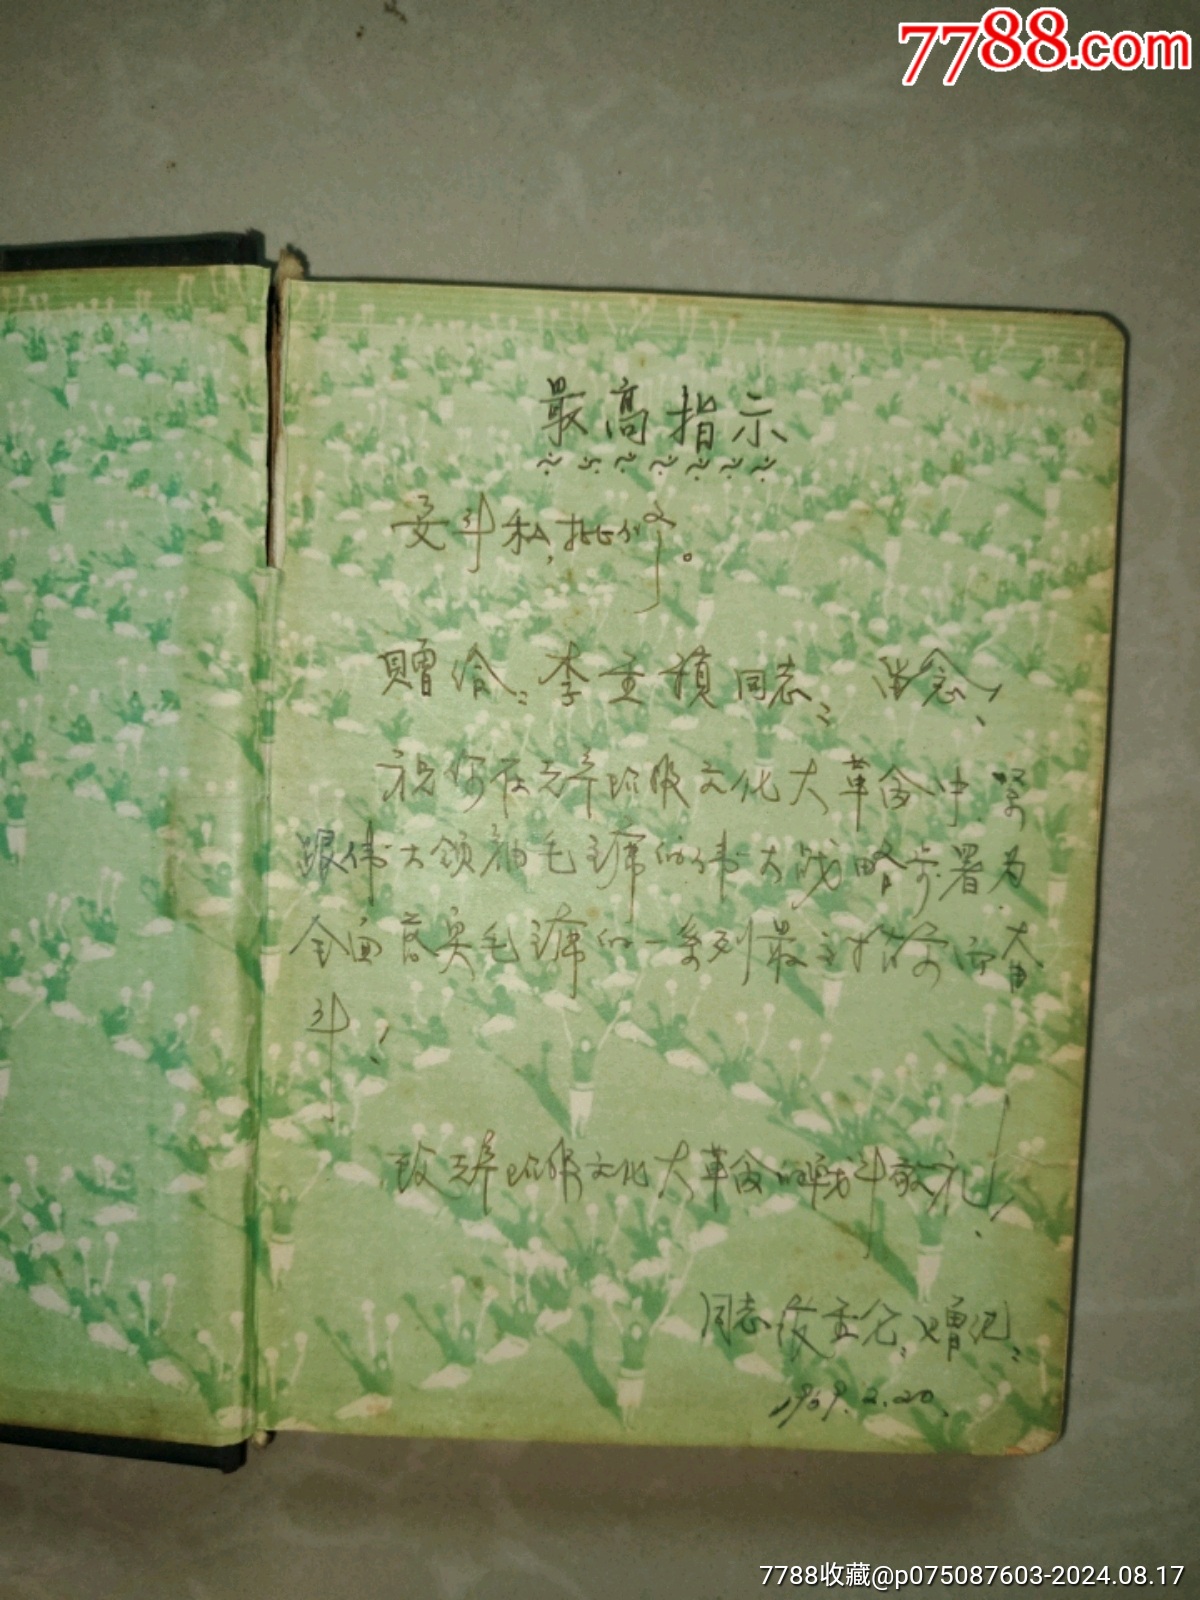 7788.com
最高指示
要斗私,批修。
赠给:李重
同志: 留念!
祝你在无产阶级文化大革命中紧
跟伟大领袖毛主席的伟大战略步署为
全面落实毛主席的一系列最 指示而奋
斗!
致无产阶级文化大革命的战斗敬礼!
同志 重 赠
1969.2.20.
7788收藏@p075087603-2024.08.17